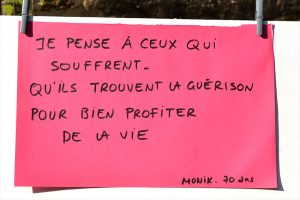 JE PENSE À CEUX QUI
SOUFFRENT_
QU'ILS TROUVENT LA GUÉRISON
POUR BIEN PROFITER
DE LA VIE
MONIK. 70 ans